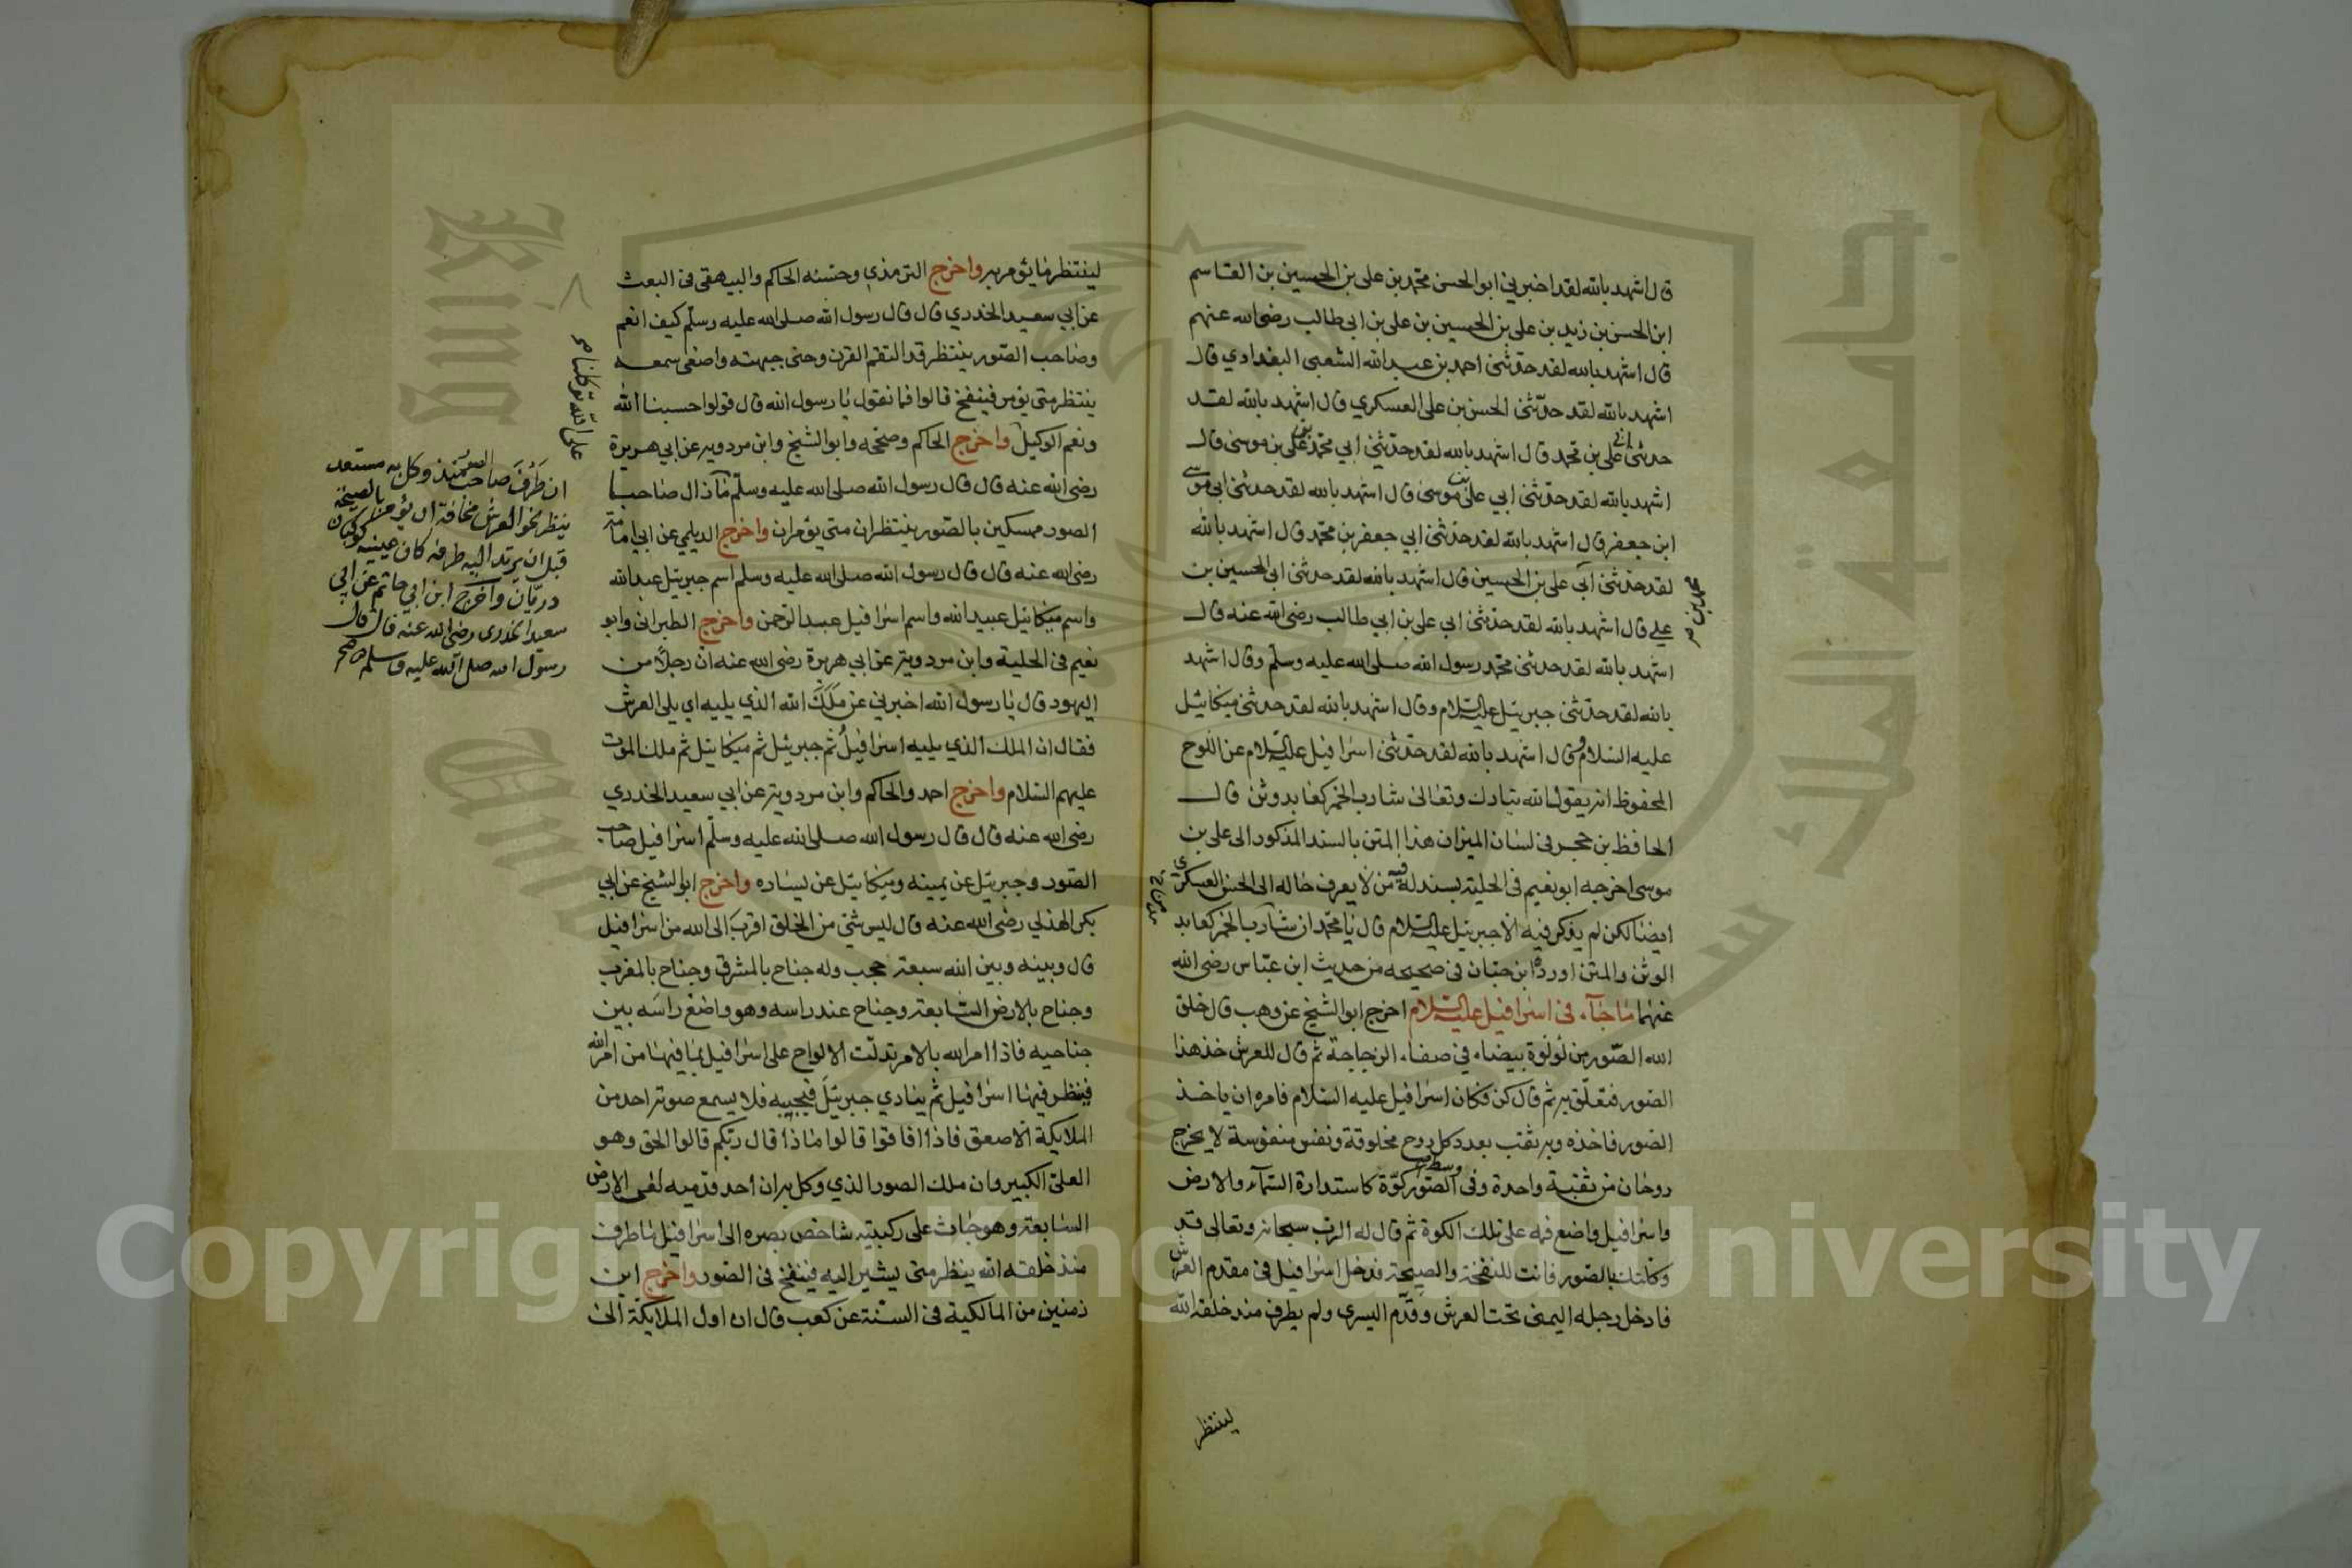 قال اشهد بالله لقد اخبرني ابو الحسن محمد بن على بن الحسين بن القاسم
ابن الحسن بن زيد بن على بن الحسين بن على بن ابى طالب رضى الله عنهم
قال اشهد بالله لقد حدثنى احمد بن عبد الله الشعبى البغدادي قال
اشهد بالله لقد حدّثنى الحسن بن على العسكري قال اشهد بالله لقد
حدثنى ابى على بن محمد قال اشهد بالله لقد حدّثنى أبي محمد بن على بن موسى قال
اشهد بالله لقد حدّثنى ابي على بن موسى قال اشهد بالله لقد حدثنى ابى موسى
ابن جعفر قال اشهد بالله لقد حدّثنى ابي جعفر بن محمد قال اشهد بالله
لقد حدّثنى أبى على بن الحسين قال اشهد بالله لقد حدثنى ابى الحسين بن
محمد بن
على قال اشهد بالله لقد حدّثنى ابى على بن ابي طالب رضى الله عنه قال
اشهد بالله لقد حدثنى محمد رسول الله صلى الله عليه وسلّم وقال اشهد
بالله لقد حدّثنى جبريئل عليه السلام وقال اشهد بالله لقد حدثنى ميكائيل
عليه السلام وقال اشهد بالله لقد حدّثنى اسرافيل عليه السلام عن اللوح
المحفوظ انه يقول الله تبارك وتعالى شارب الخمر كعابد وثن قال
الحافظ بن حجر فى لسان الميزان هذا المتن بالسند المذكور الى على بن
موسى اخرجه ابو نعيم فى الحلية بسند له فيه من لا يعرف حاله الى الحسن العسكري
ايضا لكن لم يذكر فيه الا جبريئل عليه السلام قال يا محمد ان شارب الخمر كعابد
الوثن والمتن اورده ابن حبّان فى صحيحه من حديث ابن عبّاس رضى الله
عنهما ما جآء فى اسرافيل عليه السلام اخرج ابو الشيخ عن وهب قال خلق
الله الصّور من لؤلؤة بيضاء في صفاء الزجاجة ثم قال للعرش خذ هذا
الصّور فتعلّق به ثم قال كن فكان اسرافيل عليه السلام فامره ان ياخذ
الصّور فاخذه وبه ثقب بعدد كل روح مخلوقة ونفس منفوسة لا يخرج
روحان من ثقبة واحدة وفى وسط الصّور كوّة كاستدارة السّمآء والارض
واسرافيل واضع فمه على تلك الكوة ثم قال له الرب سبحانه وتعالى قد
وكّلتك بالصّور فانت للنفخة والصيحة فدخل اسرافيل فى مقدم العرش
فادخل رجله اليمنى تحت العرش وقدّم اليسرى ولم يطرف منذ خلقه الله
لينتظر
لينتظر ما يؤمر به واخرج الترمذي وحسّنه الحاكم والبيهقى فى البعث
عن ابي سعيد الخدري قال قال رسول الله صلى الله عليه وسلّم كيف انعم
وصاحب الصّور ينتظر قد التقم القرن وحنى جبهته واصغى سمعه
ينتظر متى يؤمر فينفخ قالوا فما نقول يا رسول الله قال قولوا حسبنا الله
ونعم الوكيل واخرج الحاكم وصحّحه وابو الشيخ وابن مردويه عن ابي هريرة
رضى الله عنه قال قال رسول الله صلى الله عليه وسلّم ما زال صاحبا
الصور ممسكين بالصّور ينتظران متى يؤمران واخرج الديلمي عن ابي امامة
رضى الله عنه قال قال رسول الله صلى الله عليه وسلم اسم جبريئل عبد الله
واسم ميكائيل عبيد الله واسم اسرافيل عبد الرّحمن واخرج الطبرانى وابو
نعيم فى الحلية وابن مردويه عن ابي هريرة رضى الله عنه ان رجلًا من
اليهود قال يا رسول الله اخبرني عن مَلَك الله الذي يليه اي يلى العرش
فقال ان الملك الذي يليه اسرافيل ثم جبريئل ثم ميكائيل ثم ملك الموت
عليهم السّلام واخرج احمد والحاكم وابن مردويه عن ابي سعيد الخدري
رضى الله عنه قال قال رسول الله صلى الله عليه وسلّم اسرافيل صاحب
الصّور وجبريئل عن يمينه وميكائيل عن يساره واخرج ابو الشيخ عن ابي
بكر الهذلي رضى الله عنه قال ليس شئ من الخلق اقرب الى الله من اسرافيل
قال وبينه وبين الله سبعة حجب وله جناح بالمشرق وجناح بالمغرب
وجناح بالارض السّابعة وجناح عند راسه وهو واضع راسه بين
جناحيه فاذا امر الله بالامر تدلّت الالواح على اسرافيل بما فيها من امر الله
فينظر فيها اسرافيل ثم ينادي جبريئل فيجيبه فلا يسمع صوته احد من
الملايكة الّا صعق فاذا افاقوا قالوا ماذا قال ربّكم قالوا الحق وهو
العلىّ الكبير وان ملك الصور الذي وكل به ان احد قدميه لفى الارض
السّابعة وهو جاث على ركبتيه شاخص بصره الى اسرافيل ما طرف
منذ خلقه الله ينظر متى يشير اليه فينفخ فى الصّور واخرج ابن
زمنين من المالكية فى السنة عن كعب قال ان اول الملايكة الى
على الله توكلنا صح
ان طَرْفَ صاحب الصّور منذ وكل به مستعد
ينظر نحو العرش مخافة ان يؤمر بالصيحة
قبل ان يرتد اليه طرفه كان عينيه كوكبان
دريّان واخرج ابن ابي حاتم عن ابي
سعيد الخدرى رضى الله عنه قال قال
رسول الله صلى الله عليه وسلم صح
Copyright © King Saud University